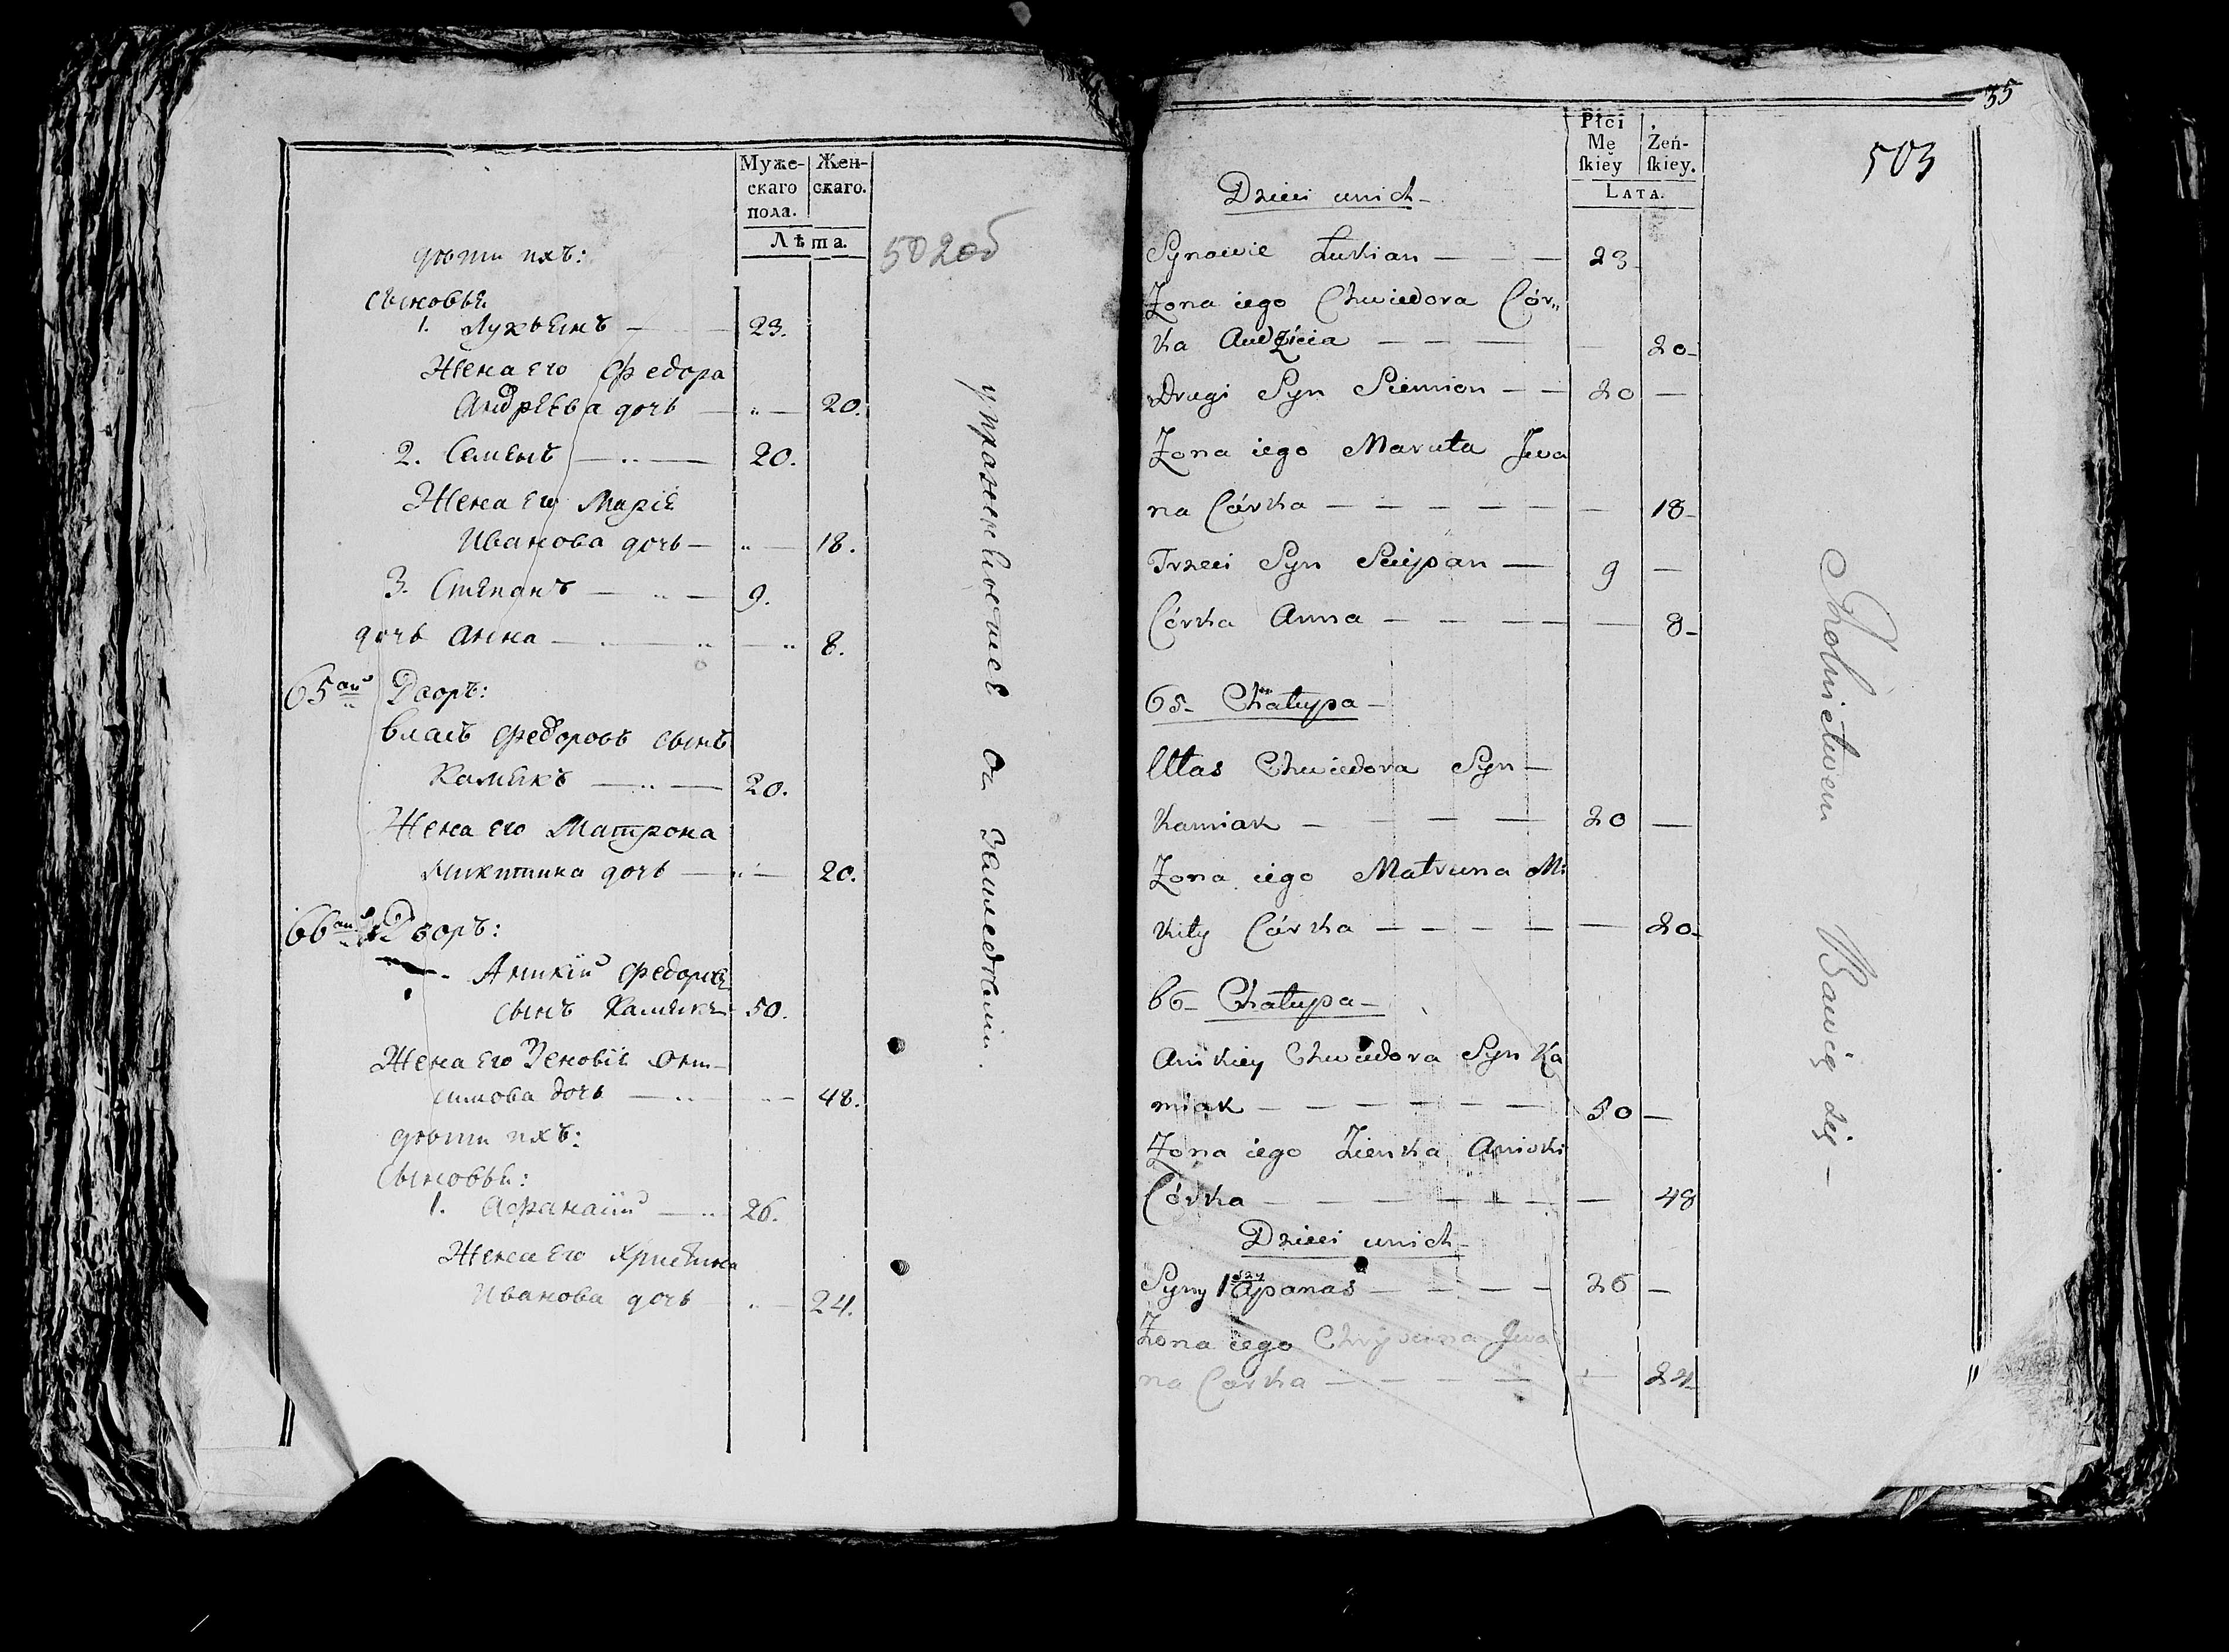 Муже-
скаго
пола.
Жен-
скаго.
Лѣта.
502об
дѣти ихъ:
сыновья
1. Лукьянъ — 23.
Жена его Федора
Андрѣева дочь — 20.
2. Семенъ — 20.
Жена его Марія
Иванова дочь — 18.
3. Степанъ — 9.
дочь Анна — 8.
65ай Дворъ:
Власъ Федоровъ сынъ
Камякъ — 20.
Жена его Матрона
Микитина дочь — 20.
66ай Дворъ:
Аникій Федоровъ
сынъ Камякъ 50.
Жена его Зеновія
дочь — 48.
дѣти ихъ:
сыновья:
1. Афанасій — 26.
Жена его Христина
Иванова дочь — 24.
упражняющіеся въ земледѣліи.
35
503
Płci
Mę
ſkiey
Żeń-
ſkiey.
LATA.
Dzieci unich
Synowie Łukian — — — 23
Żona iego Chwiedora Cór„
ka — — — — 20
Drugi Syn Siemion — — 20 —
Żona iego Maruta Jwa
na Córka — — — — — — 18
Trzeci Syn Sciepan — 9 —
Córka Anna — — — — — 8
65 Chałupa
Ułas Chwiedora Syn —
Kamiak — — — — 20 —
Żona iego Matruna Mi
kity Córka — — — — — 20
66 Chałupa
Anikiey Chwiedora Syn Ka
miak — — — — — — 50 —
Żona iego Zienka
Córka — — — — — — — 48
Dzieci unich
Syny 1szy Apanas — — — — 26 —
Żona iego Chrystina Jwa
na Córka — — — — — 24
Rolnictwem Bawią się —